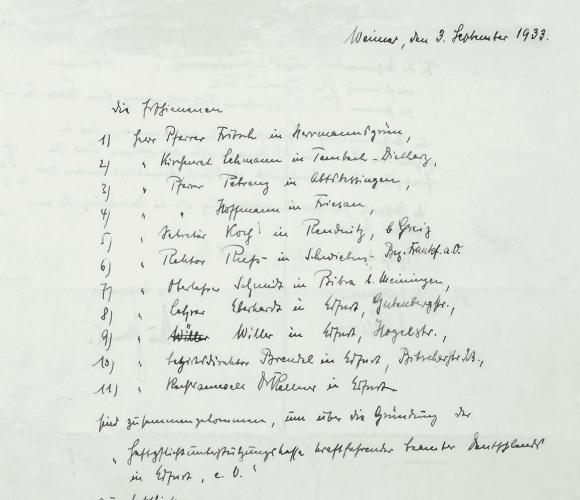 Weimar, den 3. September 1933.
die Erschienenen
1) Herr Pfarrer Fritsch in Herrmannsgrün,
2) " Kirchenrat Lehmann in Tambach-Dietharz,
3) " Pfarrer Petrenz in Abtsbessingen,
4) " " Hoffmann in Friesau,
5) " Sekretär Koch in Reudnitz, b Greiz
6) " Rektor in Schwiebus Bez. Frankf. a.O.
7) " Oberlehrer Schmidt in Bibra b. Meiningen,
8) " Lehrer Eberhardt in Erfurt, Gutenbergstr.,
9) " Witter in Erfurt, Hogelstr.,
10) " Bezirksdirektor Brendel in Erfurt,
11) " Rechtsanwalt Dr in Erfurt
sind zusammengekommen, um über die Gründung der
„Haftpflichtunterstützungskasse kraftfahrender Beamter Deutschlands
in Erfurt, e. V."